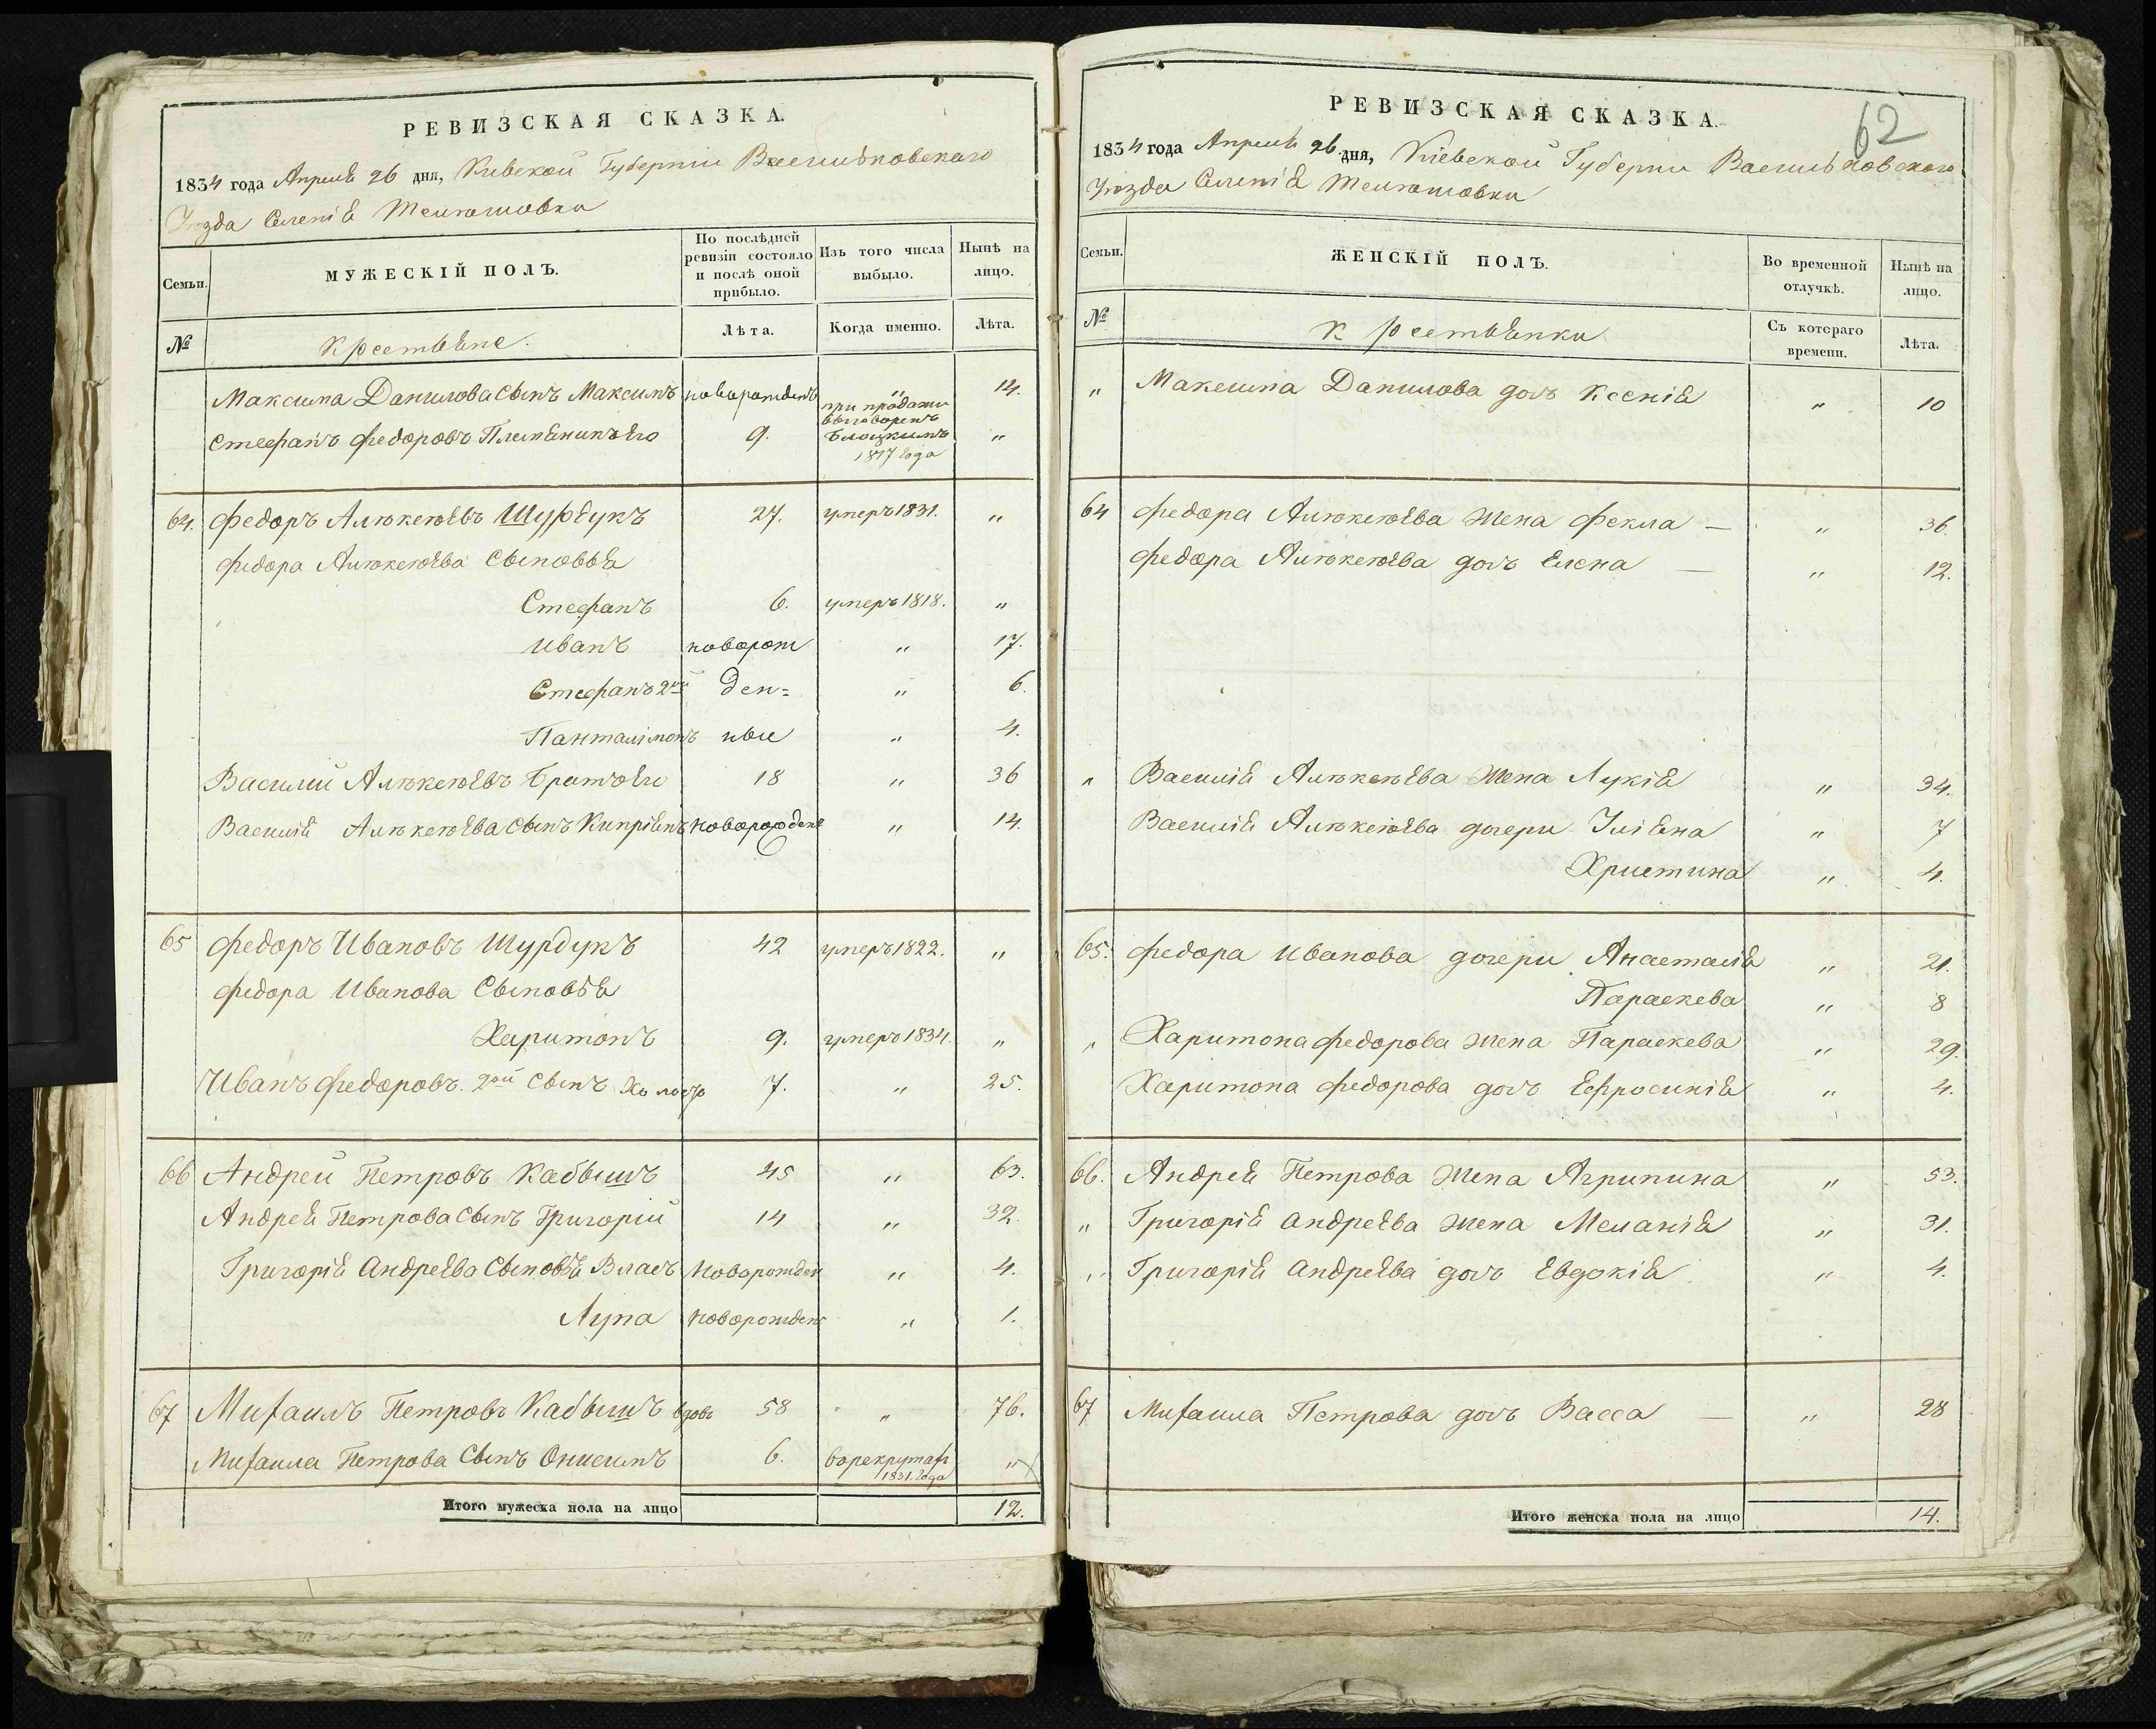 РЕВИЗСКАЯ СКАЗКА.
1834 года Апреля 26 дня, Киевской Губернии Васильковскаго
Уезда Селенія Телешовки
Семьи.
МУЖЕСКІЙ ПОЛЪ.
По послѣдней ревизіи состояло и послѣ оной прибыло.
Изъ того числа выбыло.
Нынѣ на лицо.
№
Крестьяне.
Лѣта.
Когда именно.
Лѣта.
Максима Данилова сынъ Максимъ новорожденъ " 14.
Стефанъ Федоровъ Племянникъ его 9. при продажи выговоренъ 1817 года "
64. Федоръ Алексеевъ Шурдукъ 27. умеръ 1831. "
Федора Алексеева сыновья
Стефанъ 6. умеръ 1818. "
Иванъ новорож " 17.
Стефанъ 2й ден= " 6.
Панталимонъ ные " 4.
Василий Алексеевъ братъ его 18 " 36
Василія Алексеева сынъ Кипріянъ новорожден " 14.
65 Федоръ Ивановъ Шурдукъ 42 умеръ 1822. "
Федора Иванова сыновья
Харитонъ 9. умеръ 1834. "
Иванъ Федоровъ 2ой сынъ холостъ 7. " 25.
66 Андрей Петровъ Кабышъ 45 " 63.
Андрея Петрова сынъ Григорій 14 " 32.
Григорія Андреева сыновья Власъ новорожден " 4.
Лупа новорожден " 1.
67 Михаилъ Петровъ Кабышъ вдовъ 58 " 76.
Михаила Петрова сынъ Онисимъ 6. в рекрутах 1831. года "
Итого мужеска пола на лицо 12.
62
РЕВИЗСКАЯ СКАЗКА.
1834 года Апреля 26 дня, Кіевской Губерни Васильковскаго
Уезда Селенія Телешовки
Семьи.
ЖЕНСКІЙ ПОЛЪ.
Во временной отлучкѣ.
Нынѣ на лицо.
№
Крестьянки
Съ котораго времени.
Лѣта.
" Максима Данилова дочь Ксенія " 10
64 Федора Алексеева жена Фекла — " 36.
Федора Алексеева дочь Елена — " 12.
" Василія Алексеева жена Лукія " 34.
Василія Алексеева дочери Уліяна " 7
Христина " 4.
65. Федора Иванова дочери Анастасія " 21.
Параскева " 8
" Харитона Федорова жена Параскева " 29.
Харитона Федорова дочь Ефросинія " 4.
66. Андрея Петрова жена Агрипина " 53.
" Григорія Андреева жена Меланія " 31.
" Григорія Андреева дочь Евдокія " 4.
67 Михаила Петрова дочь Васса — " 28
Итого женска пола на лицо 14.